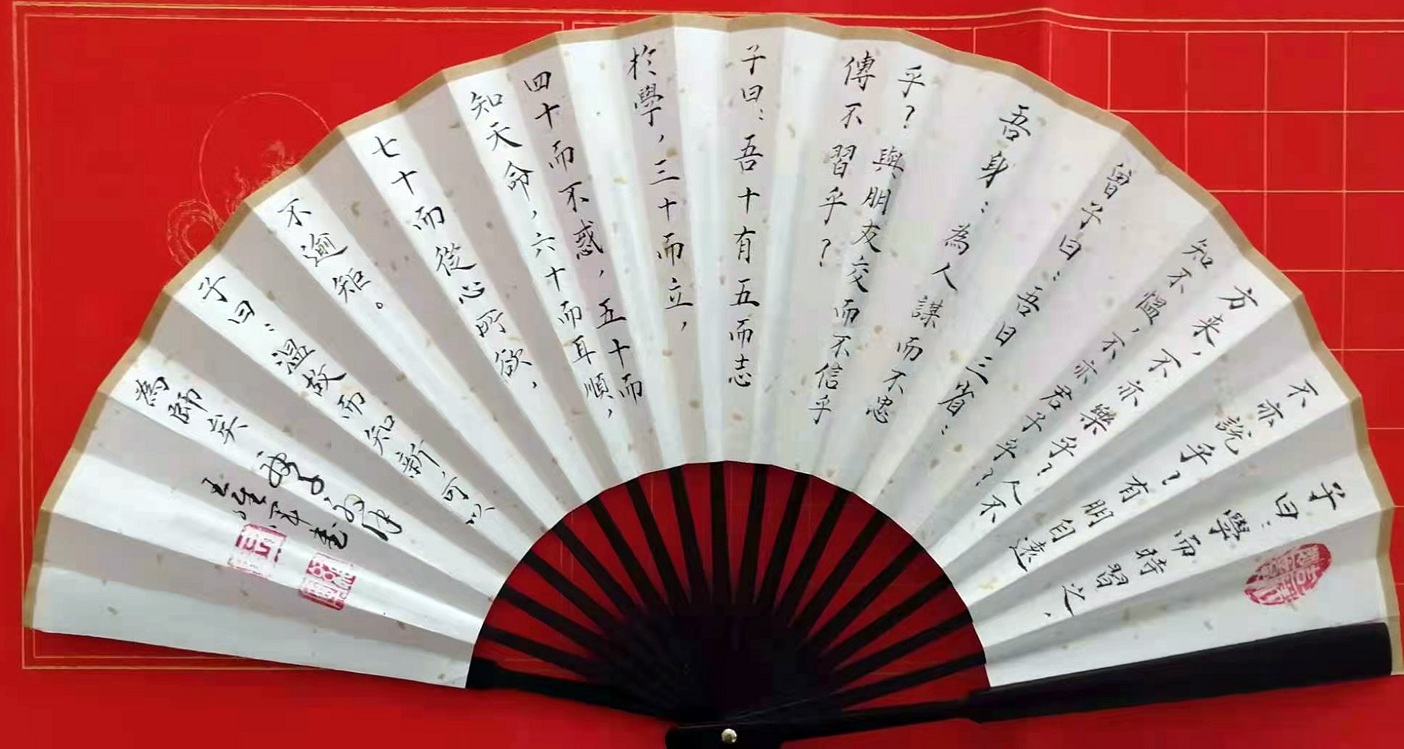 子曰:學而時習之,
不亦說乎?有朋自遠
方来,不亦樂乎?人不
知不愠,不亦君子乎?
曾子曰:吾日三省:
吾身:為人謀而不忠
乎?與朋友交而不信乎
傳不習乎?
子曰:吾十有五而志
於學,三十而立,
四十而不惑,五十而
知天命,六十而耳順,
七十而從心所欲,
不逾矩。
子曰:温故而知新,可以
為師矣